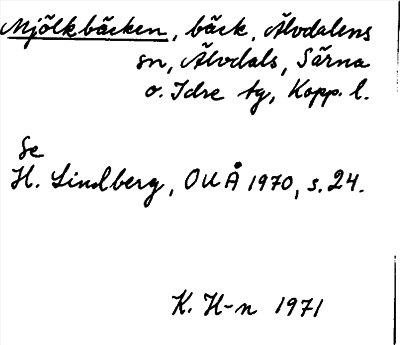 Mjölkbäcken, bäck, Älvdalens
sn, Älvdals, Särna
o. Idre tg, Kopp. l.
Se
H. Lindberg, OUÅ 1970, s. 24.
K. H-n 1971